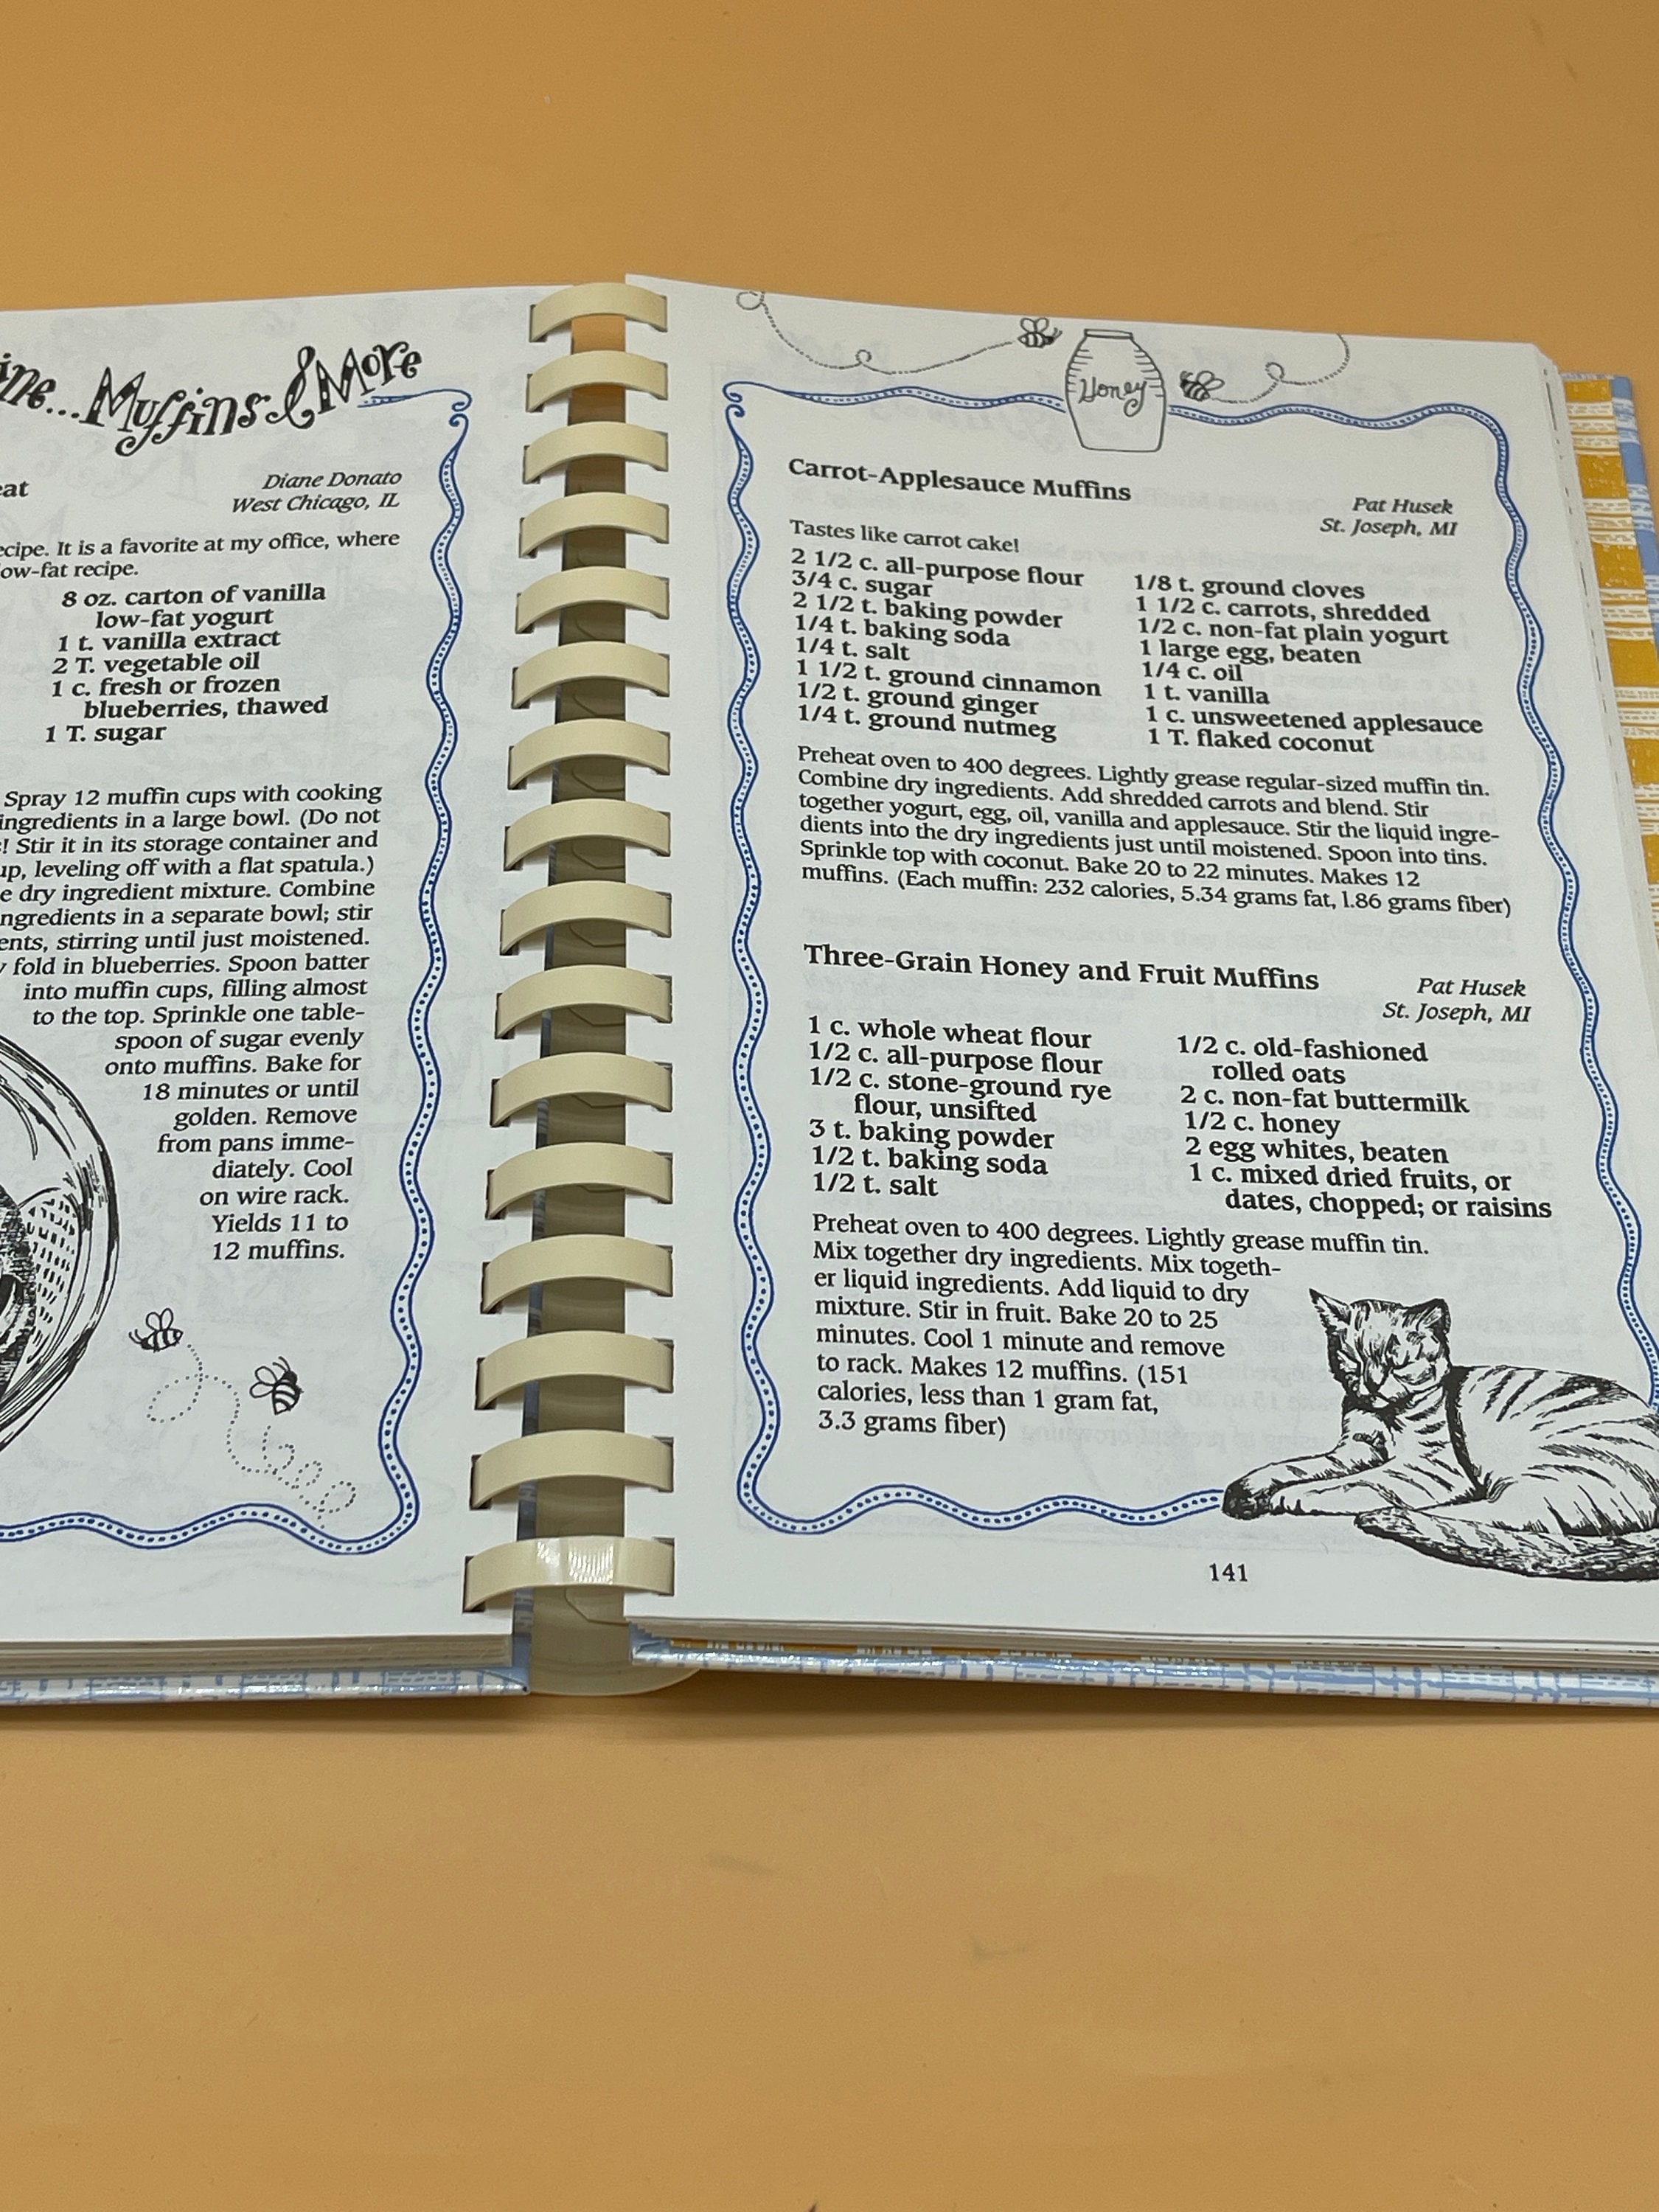 ine...Muffins & More
eat
Diane Donato
West Chicago, IL
ecipe. It is a favorite at my office, where
ow-fat recipe.
8 oz. carton of vanilla
low-fat yogurt
1 t. vanilla extract
2 T. vegetable oil
1 c. fresh or frozen
blueberries, thawed
1 T. sugar
Spray 12 muffin cups with cooking
ingredients in a large bowl. (Do not
! Stir it in its storage container and
up, leveling off with a flat spatula.)
e dry ingredient mixture. Combine
ngredients in a separate bowl; stir
ents, stirring until just moistened.
y fold in blueberries. Spoon batter
into muffin cups, filling almost
to the top. Sprinkle one table-
spoon of sugar evenly
onto muffins. Bake for
18 minutes or until
golden. Remove
from pans imme-
diately. Cool
on wire rack.
Yields 11 to
12 muffins.
Honey
Carrot-Applesauce Muffins
Pat Husek
St. Joseph, MI
Tastes like carrot cake!
2 1/2 c. all-purpose flour
3/4 c. sugar
2 1/2 t. baking powder
1/4 t. baking soda
1/4 t. salt
1 1/2 t. ground cinnamon
1/2 t. ground ginger
1/4 t. ground nutmeg
1/8 t. ground cloves
1 1/2 c. carrots, shredded
1/2 c. non-fat plain yogurt
1 large egg, beaten
1/4 c. oil
1 t. vanilla
1 c. unsweetened applesauce
1 T. flaked coconut
Preheat oven to 400 degrees. Lightly grease regular-sized muffin tin.
Combine dry ingredients. Add shredded carrots and blend. Stir
together yogurt, egg, oil, vanilla and applesauce. Stir the liquid ingre-
dients into the dry ingredients just until moistened. Spoon into tins.
Sprinkle top with coconut. Bake 20 to 22 minutes. Makes 12
muffins. (Each muffin: 232 calories, 5.34 grams fat, 1.86 grams fiber)
Three-Grain Honey and Fruit Muffins
Pat Husek
St. Joseph, MI
1 c. whole wheat flour
1/2 c. all-purpose flour
1/2 c. stone-ground rye
flour, unsifted
3 t. baking powder
1/2 t. baking soda
1/2 t. salt
1/2 c. old-fashioned
rolled oats
2 c. non-fat buttermilk
1/2 c. honey
2 egg whites, beaten
1 c. mixed dried fruits, or
dates, chopped; or raisins
Preheat oven to 400 degrees. Lightly grease muffin tin.
Mix together dry ingredients. Mix togeth-
er liquid ingredients. Add liquid to dry
mixture. Stir in fruit. Bake 20 to 25
minutes. Cool 1 minute and remove
to rack. Makes 12 muffins. (151
calories, less than 1 gram fat,
3.3 grams fiber)
141